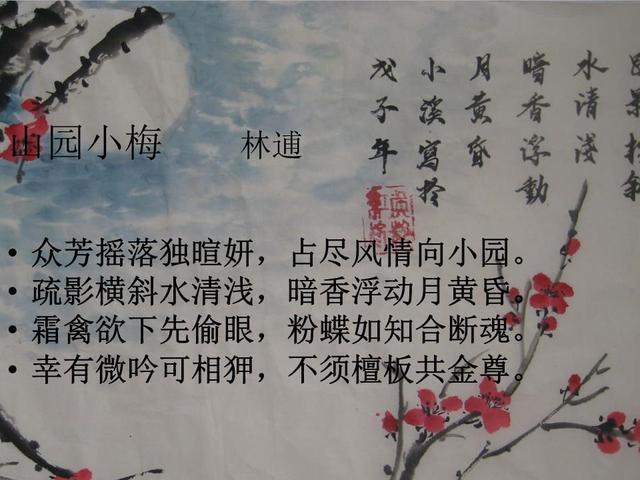 山园小梅 林逋
众芳摇落独暄妍，占尽风情向小园。
疏影横斜水清浅，暗香浮动月黄昏。
霜禽欲下先偷眼，粉蝶如知合断魂。
幸有微吟可相狎，不须檀板共金尊。
水清淺
暗香浮動
月黃昏
小溪寫於
戊子年